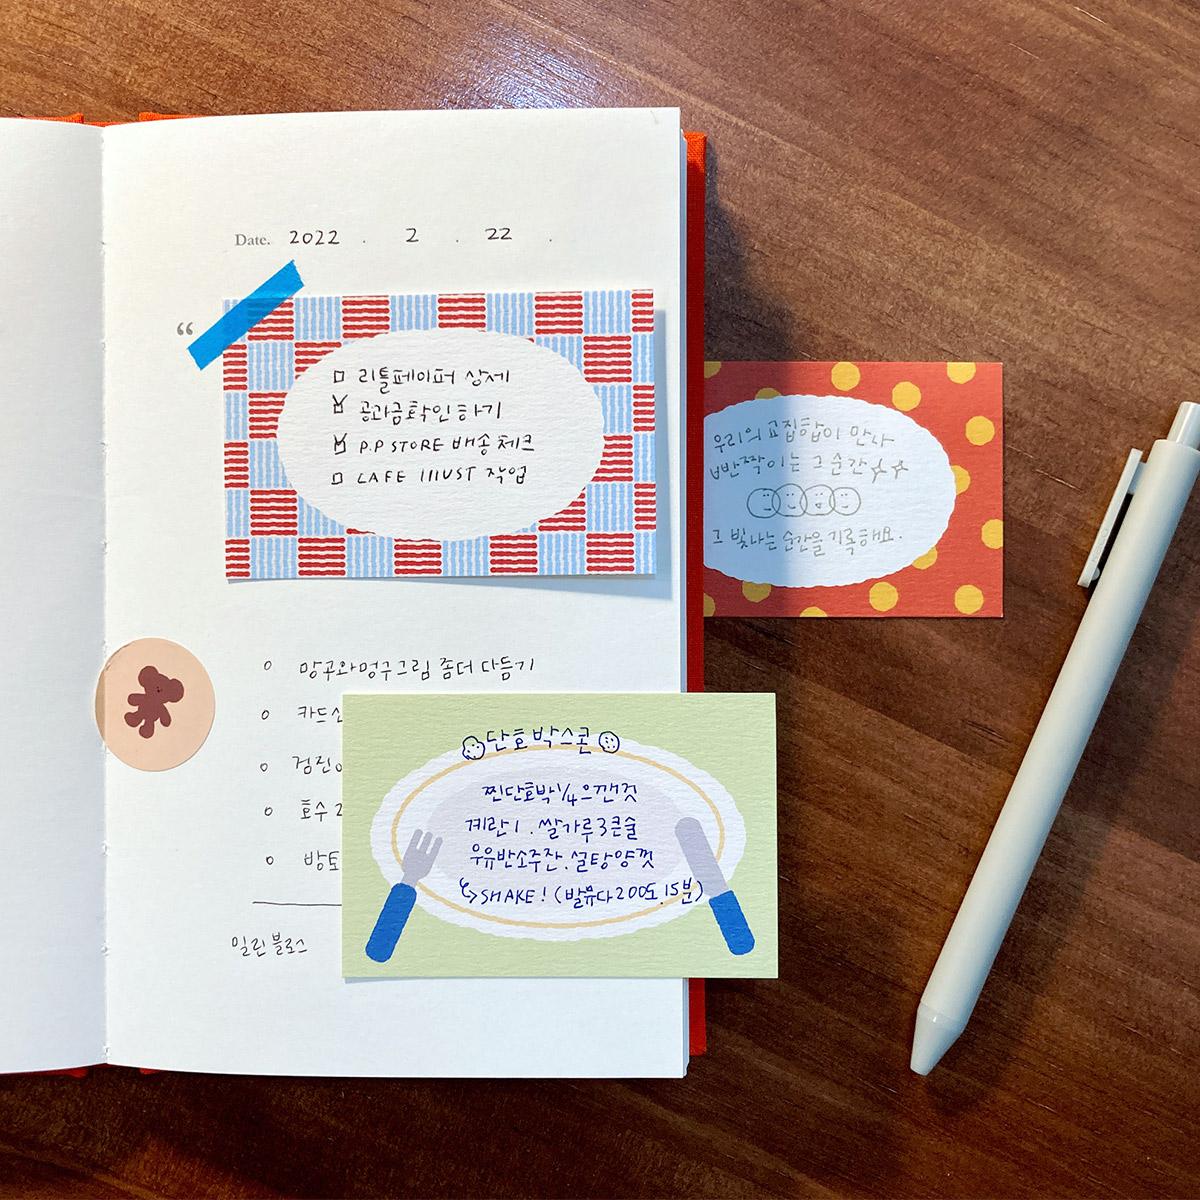 Date. 2022 . 2 . 22 .
“
□ 리틀페이퍼 상세
☑ 공과금확인하기
☑ P.P STORE 배송체크
□ CAFE IIIUST 작업
우리의 교집합이 만나
반짝이는 그 순간☆☆
그 빛나는 순간을 기록해요.
○ 망곰와멍구그림 좀더 다듬기
○ 카드
○ 검진
○ 효수
○ 방토
일린블로스
단호박스콘
찐단호박 1/4 으깬것
계란1. 쌀가루 3큰술
우유반소주잔. 설탕양껏
↳ SHAKE! (발뮤다 200도. 15분)